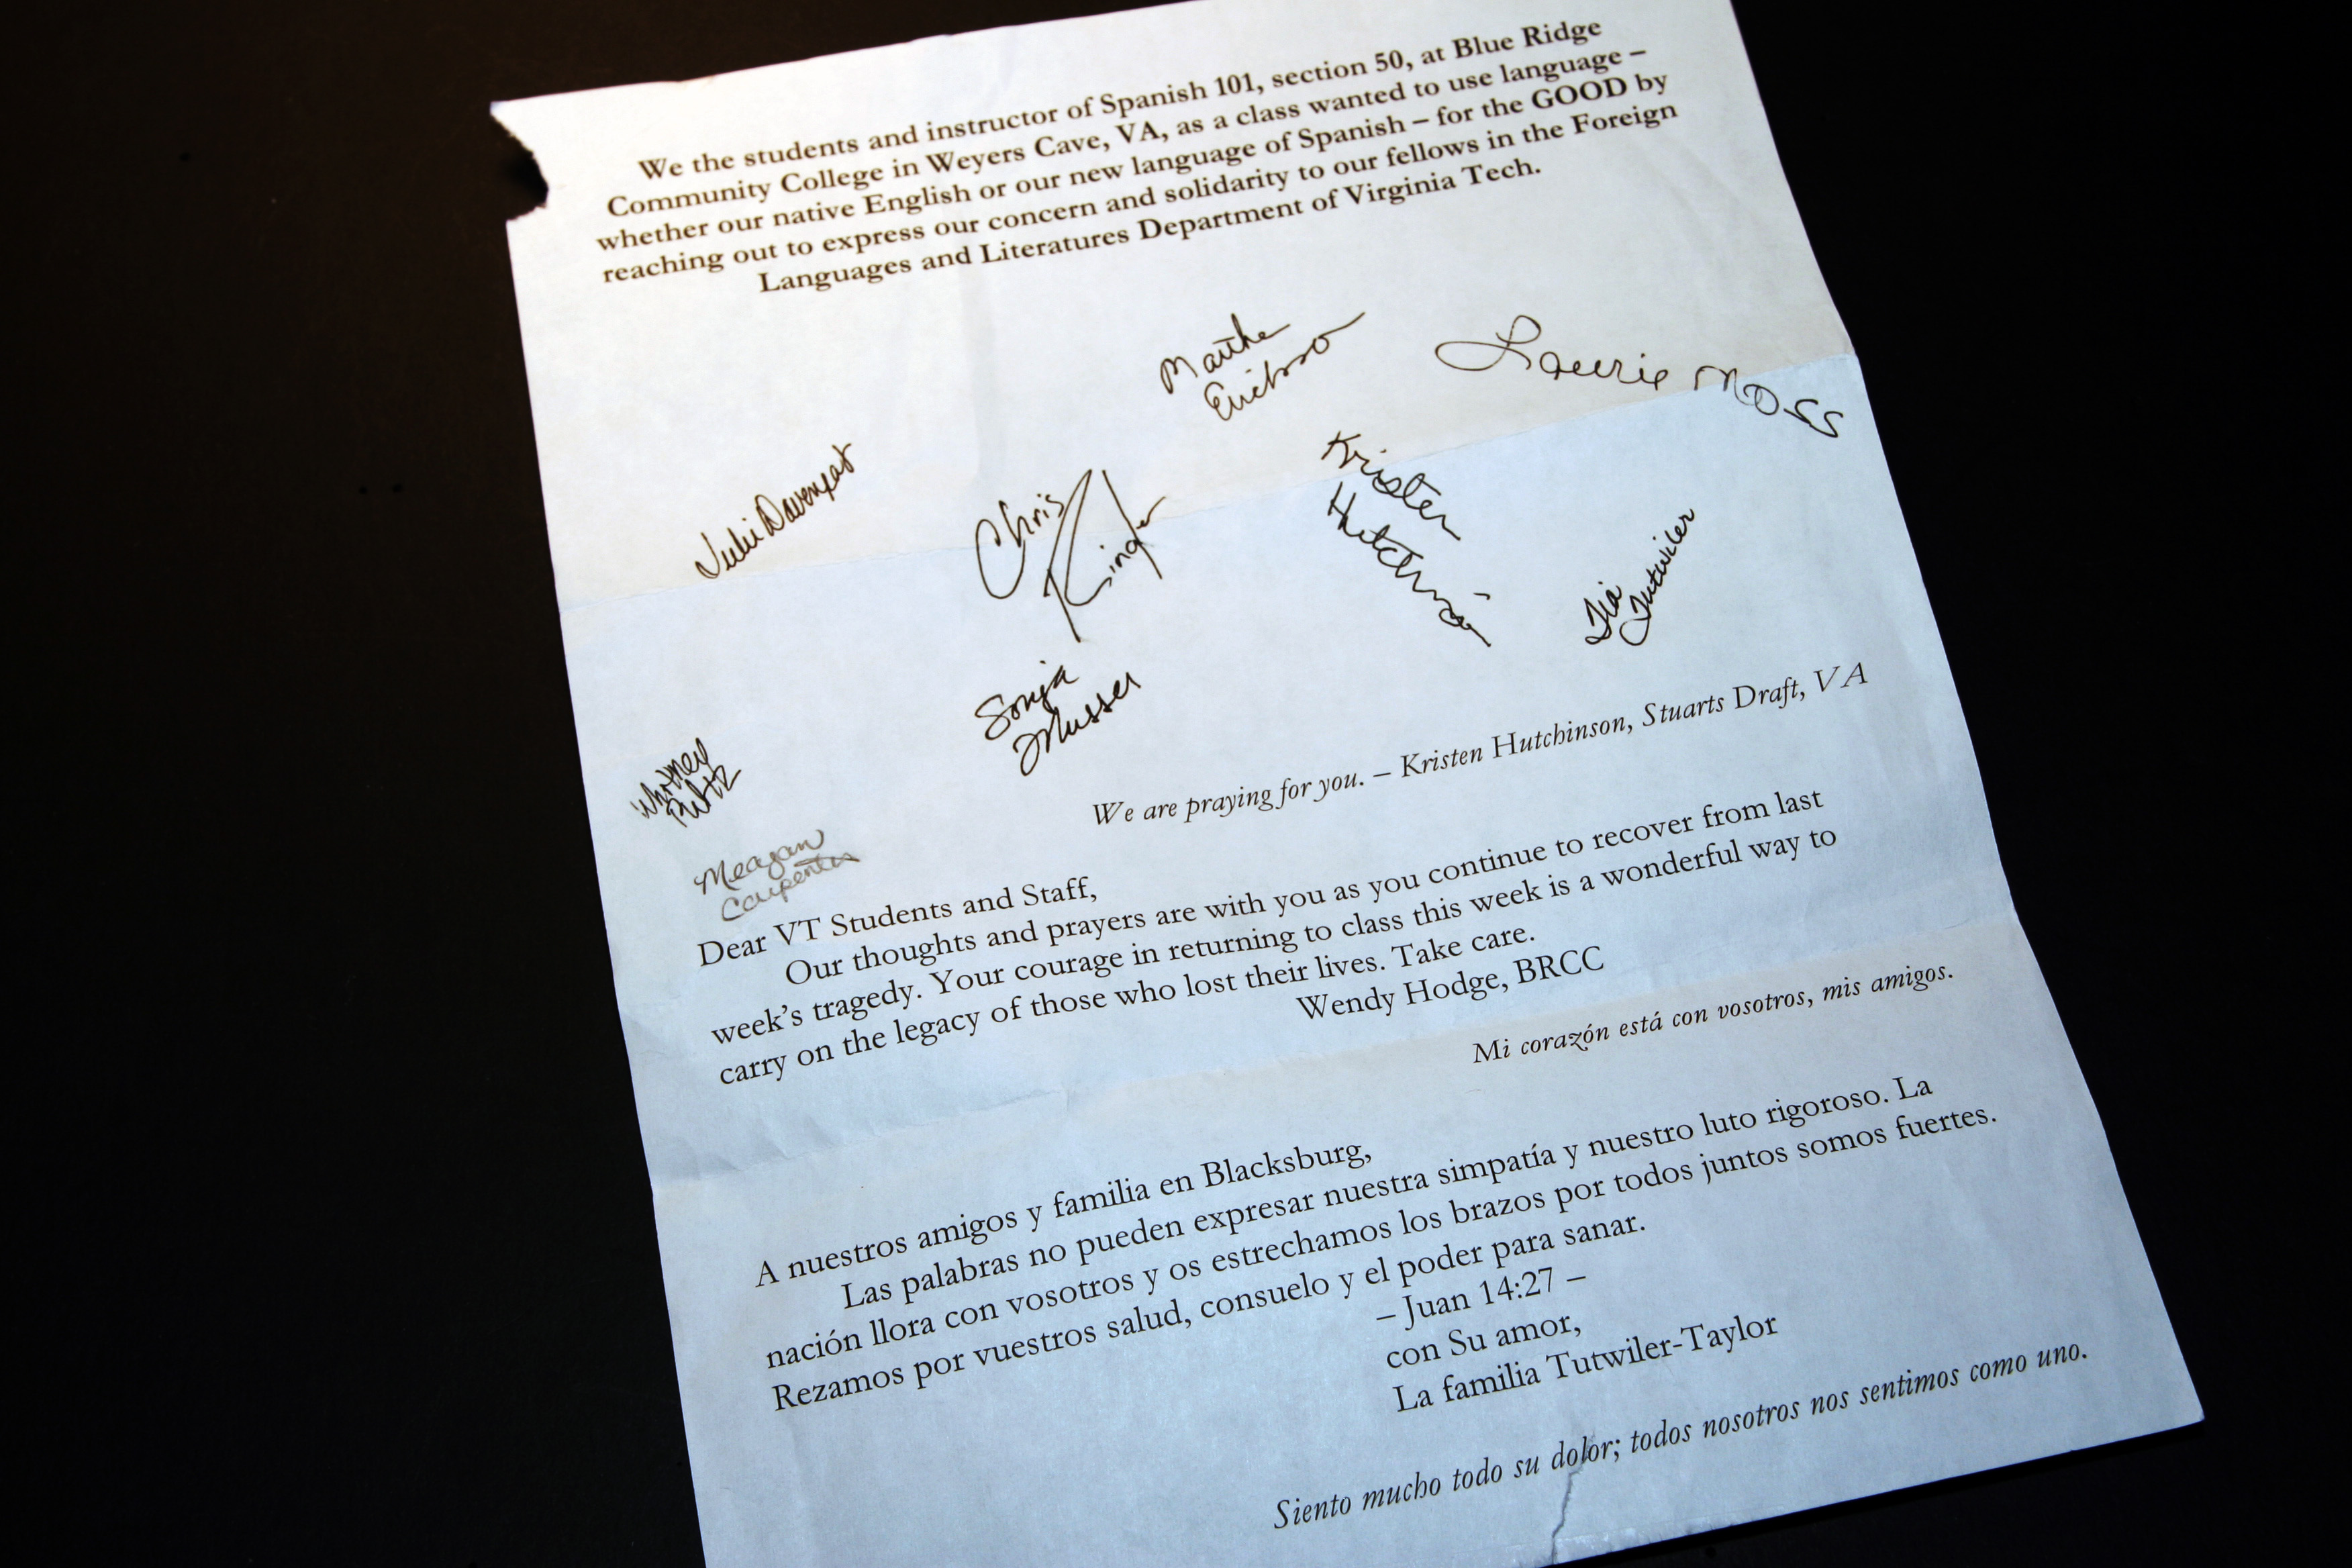 We the students and instructor of Spanish 101, section 50, at Blue Ridge
Community College in Weyers Cave, VA, as a class wanted to use language –
whether our native English or our new language of Spanish – for the GOOD by
reaching out to express our concern and solidarity to our fellows in the Foreign
Languages and Literatures Department of Virginia Tech.
Martha
Erickson
Laurie Moss
Julie Davenport
Chris
Kristen
Tia
Tutwiler
Sonja
Musser
Whitney
Meagan
Carpenter
We are praying for you. – Kristen Hutchinson, Stuarts Draft, VA
Dear VT Students and Staff,
Our thoughts and prayers are with you as you continue to recover from last
week's tragedy. Your courage in returning to class this week is a wonderful way to
carry on the legacy of those who lost their lives. Take care.
Wendy Hodge, BRCC
Mi corazón está con vosotros, mis amigos.
A nuestros amigos y familia en Blacksburg,
Las palabras no pueden expresar nuestra simpatía y nuestro luto rigoroso. La
nación llora con vosotros y os estrechamos los brazos por todos juntos somos fuertes.
Rezamos por vuestros salud, consuelo y el poder para sanar.
– Juan 14:27 –
con Su amor,
La familia Tutwiler-Taylor
Siento mucho todo su dolor; todos nosotros nos sentimos como uno.